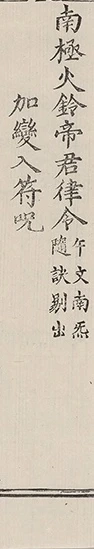 南極火鈴帝君律令午文南炁
隨訣剔出
加變入符咒